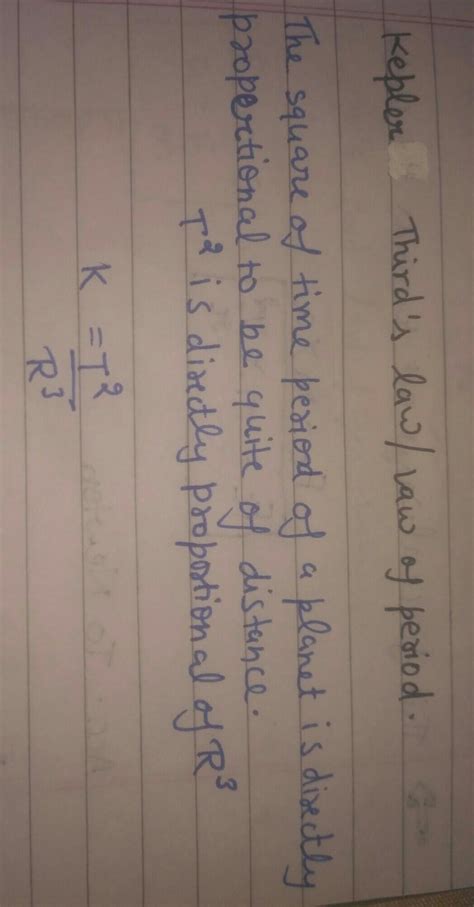 Kepler Third's law/Law of period.
The square of time period of a planet is directly
propertional to be quite of distance.
T² is directly proportional of R³
K = T²
R³